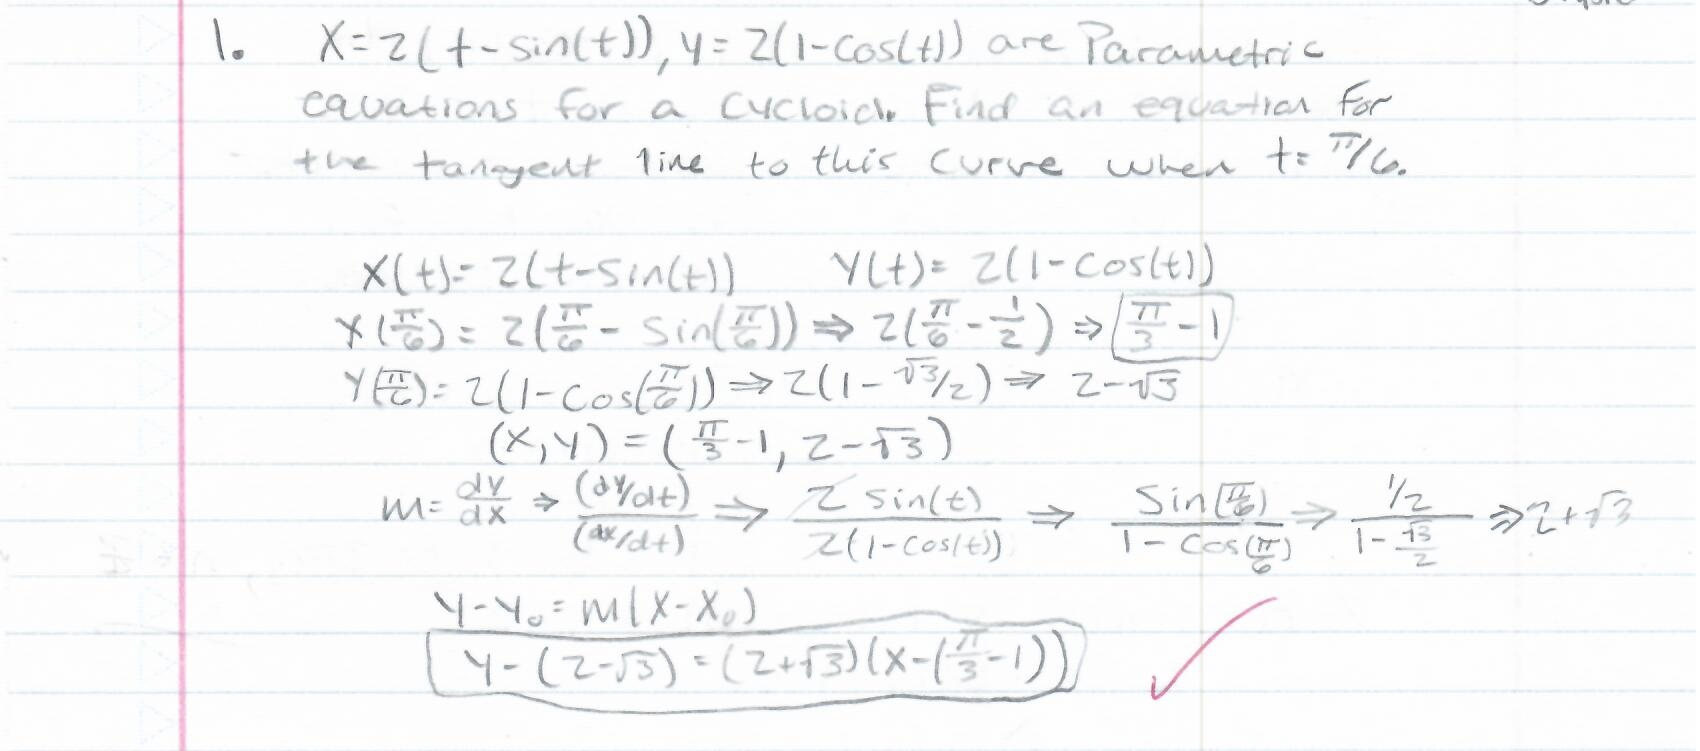 1. X=2(t-sin(t)), y=2(1-cos(t)) are Parametric
equations for a cycloid. Find an equation for
the tangent line to this curve when t=π/6.
X(t)=2(t-sin(t)) Y(t)=2(1-cos(t))
X(π/6)=2(π/6-sin(π/6))⇒2(π/6-1/2)⇒π/3-1
Y(π/6)=2(1-cos(π/6))⇒2(1-√3/2)⇒2-√3
(X,Y)=(π/3-1, 2-√3)
m=dy/dx⇒(dy/dt)/(dx/dt)⇒2sin(t)/2(1-cos(t))⇒sin(π/6)/1-cos(π/6)⇒1/2/1-√3/2⇒2+√3
Y-Y₀=m(X-X₀)
Y-(2-√3)=(2+√3)(X-(π/3-1))